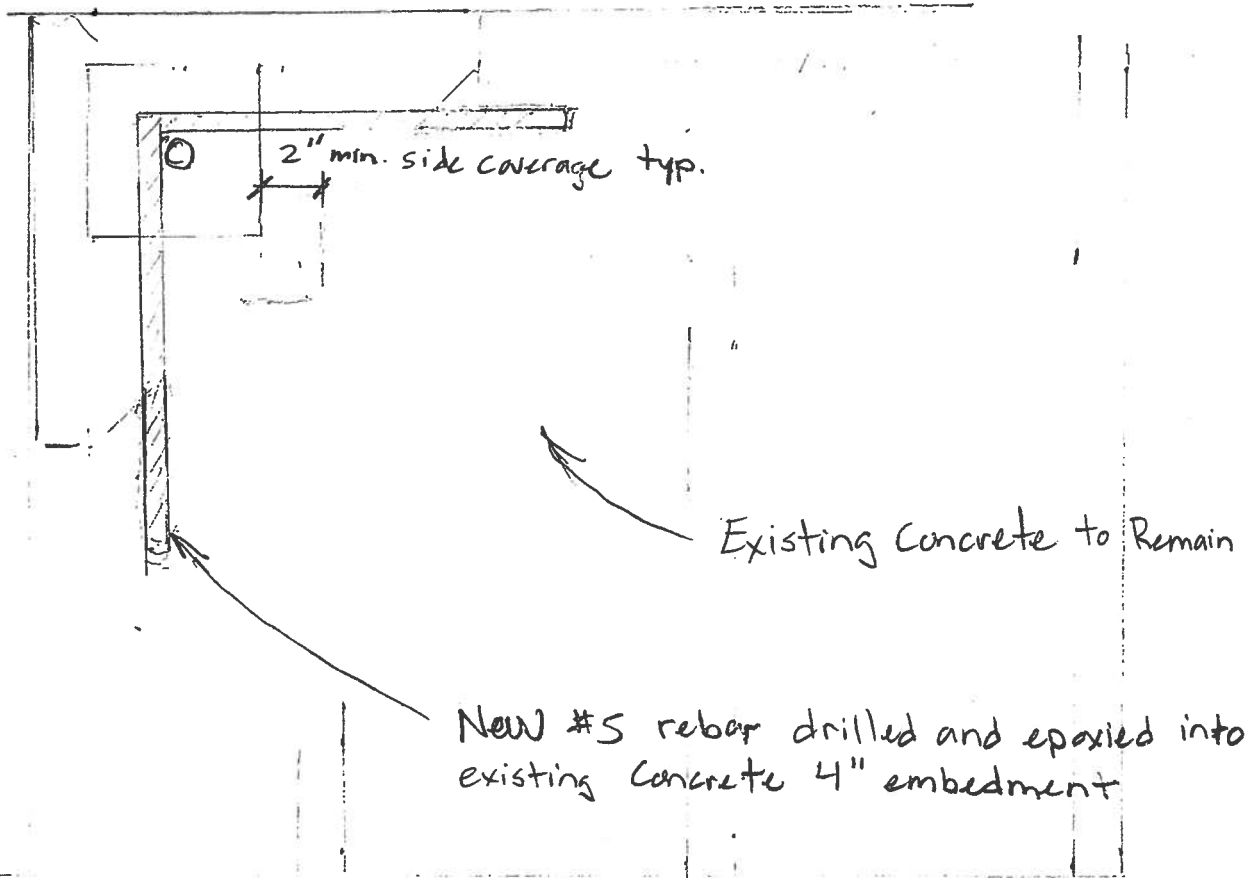 2" min. side coverage typ.
Existing Concrete to Remain
New #5 rebar drilled and epoxied into
existing Concrete 4" embedment